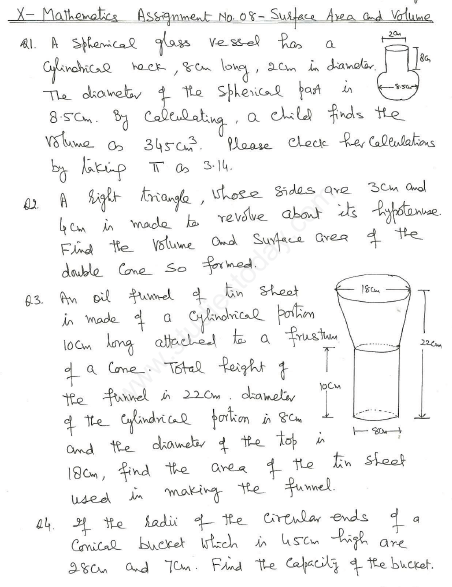 X- Mathematics Assignment No. 08 - Surface Area and Volume
Q1. A spherical glass vessel has a
cylindrical neck, 8cm long, 2cm in diameter.
The diameter of the spherical part is
8.5cm. By calculating, a child finds the
volume as 345cm³. Please check her calculations
by taking π as 3.14.
2cm
8cm
8.5cm
Q2. A right triangle, whose sides are 3cm and
4cm is made to revolve about its hypotenuse.
Find the volume and surface area of the
double cone so formed.
Q3. An oil funnel of tin sheet
is made of a cylindrical portion
10cm long attached to a frustum
of a cone. Total height of
the funnel is 22cm. diameter
of the cylindrical portion is 8cm
and the diameter of the top is
18cm, find the area of the tin sheet
used in making the funnel.
18cm
22cm
10cm
8cm
Q4. If the radii of the circular ends of a
conical bucket which is 45cm high are
28cm and 7cm. Find the capacity of the bucket.